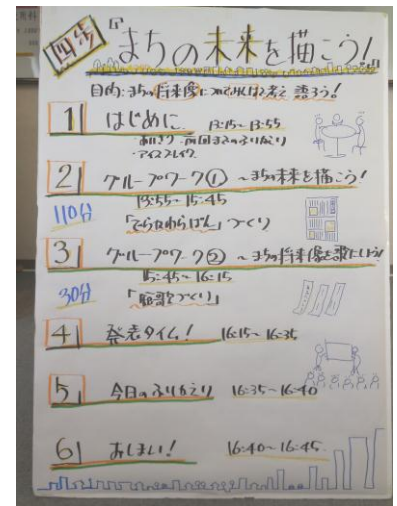 四歩
『まちの未来を描こう!
目的:まちの将来像について考え 語ろう!
1 はじめに 13:15~13:55
・あいさつ・前回までのふりかえり
・アイスブレイク
2 グループワーク① ~まちの未来を描こう!
13:55~15:45
110分
づくり
3 グループワーク② ~まちの将来像を歌にしよう!
15:45~16:15
30分
づくり」
4 発表タイム! 16:15~16:35
5 今日のふりかえり 16:35~16:40
6 おしまい! 16:40~16:45